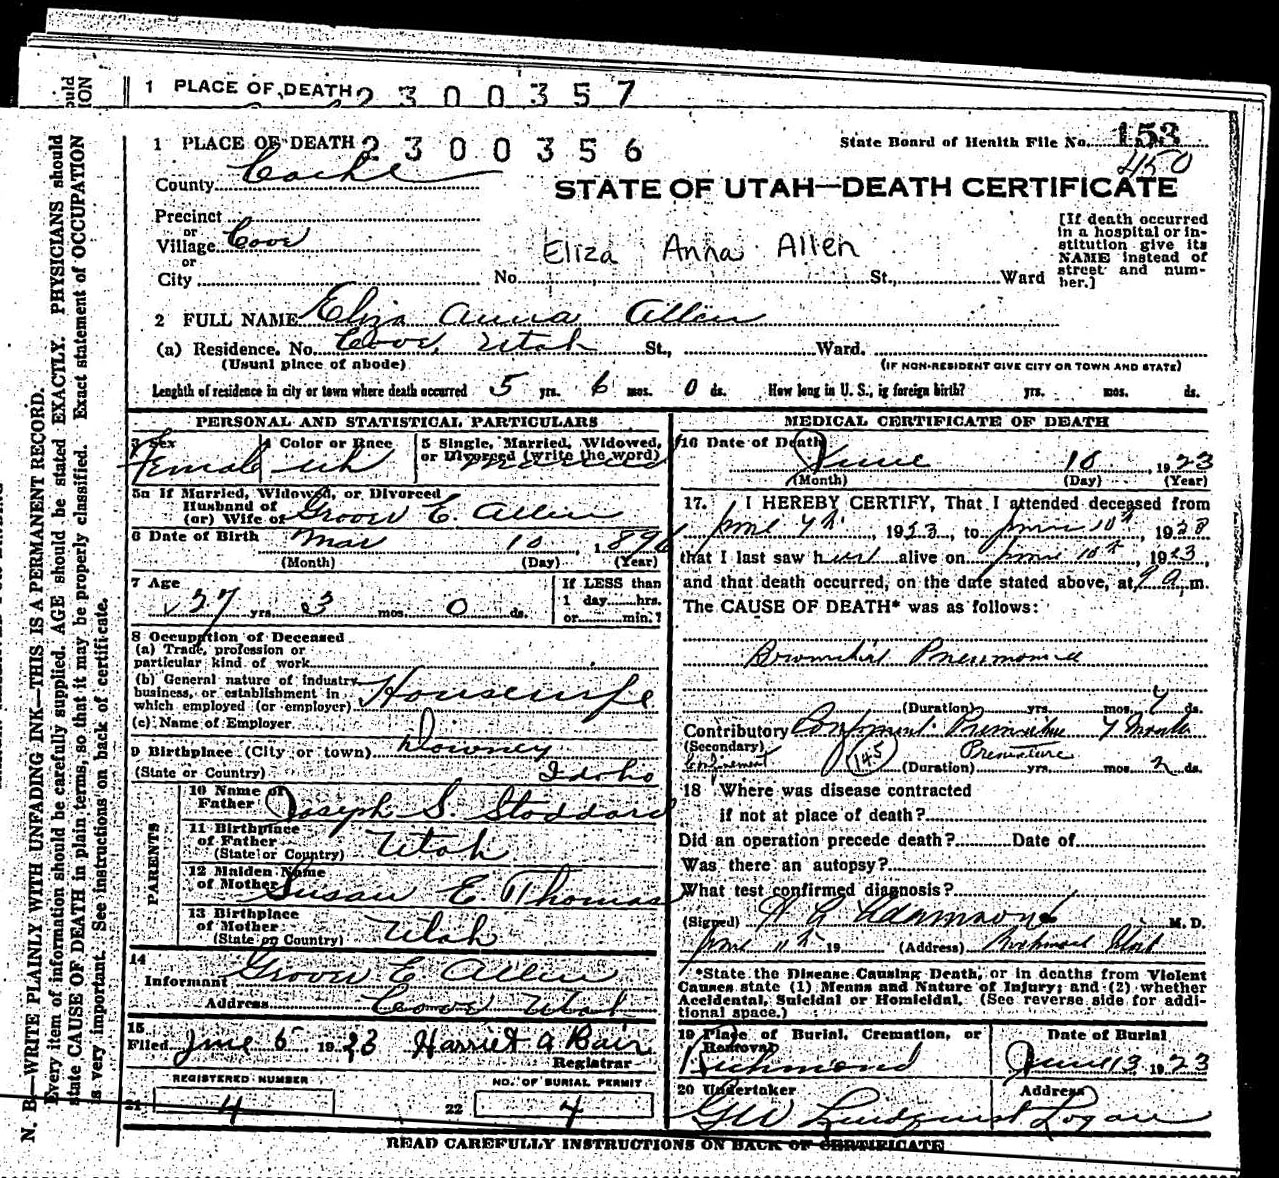 1 PLACE OF DEATH 2300357
1 PLACE OF DEATH 2300356
State Board of Health File No. 153
450
County Cache
STATE OF UTAH—DEATH CERTIFICATE
Precinct
or
Village Cove
or
City
Eliza Anna Allen
No. St., Ward
[If death occurred
in a hospital or in-
stitution give its
NAME instead of
street and num-
ber.]
2 FULL NAME Eliza Anna Allen
(a) Residence. No. Cove, Utah St., Ward.
(Usual place of abode)
(IF NON-RESIDENT GIVE CITY OR TOWN AND STATE)
Lenghth of residence in city or town where death occurred 5 yrs. 6 mos. 0 ds. How long in U. S., is foreign birth? yrs. mos. ds.
PERSONAL AND STATISTICAL PARTICULARS
3 Sex
Female
4 Color or Race
wh
5 Single, Married, Widowed,
or Divorced (write the word)
Married
5a If Married, Widowed, or Divorced
Husband of
(or) Wife of Grover E. Allen
6 Date of Birth Mar 10, 1896
(Month) (Day) (Year)
7 Age
27 yrs. 3 mos. 0 ds.
If LESS than
1 day hrs.
or min.?
8 Occupation of Deceased
(a) Trade, profession or
particular kind of work
(b) General nature of industry
business, or establishment in
which employed (or employer) Housewife
(c) Name of Employer
9 Birthplace (City or town) Downey
(State or Country) Idaho
PARENTS
10 Name of
Father Joseph S. Stoddard
11 Birthplace
of Father
(State or Country) Utah
12 Maiden Name
of Mother Susan E. Thomas
13 Birthplace
of Mother
(State or Country) Utah
14
Informant Grover E Allen
Address Cove Utah
15
Filed June 1923 Harriet A Bair
Registrar
REGISTERED NUMBER
21 4
NO. OF BURIAL PERMIT
22 4
MEDICAL CERTIFICATE OF DEATH
16 Date of Death
June 10, 1923
(Month) (Day) (Year)
17. I HEREBY CERTIFY, That I attended deceased from
June 7th, 1923, to June 10th, 1923
that I last saw her alive on June 10th, 1923,
and that death occurred, on the date stated above, at 9 a.m.
The CAUSE OF DEATH* was as follows:
Bronchial Pneumonia
(Duration) yrs. mos. 4 ds.
Contributory Confinement Premature 7 Months
(Secondary)
Confinement 145 Premature
(Duration) yrs. mos. 2 ds.
18 Where was disease contracted
if not at place of death?
Did an operation precede death? Date of
Was there an autopsy?
What test confirmed diagnosis?
(Signed) Adamson M. D.
June 11th 19 (Address) Richmond Utah
*State the Disease Causing Death, or in deaths from Violent
Causes state (1) Means and Nature of Injury; and (2) whether
Accidental, Suicidal or Homicidal. (See reverse side for addi-
tional space.)
19 Place of Burial, Cremation, or
Removal
Richmond
Date of Burial
June 13, 1923
20 Undertaker
GW Lindquist
Address
Logan
READ CAREFULLY INSTRUCTIONS ON BACK OF CERTIFICATE
N. B—WRITE PLAINLY WITH UNFADING INK—THIS IS A PERMANENT RECORD.
Every item of information should be carefully supplied. AGE should be stated EXACTLY. PHYSICIANS should
state CAUSE OF DEATH in plain terms, so that it may be properly classified. Exact statement of OCCUPATION
is very important. See instructions on back of certificate.